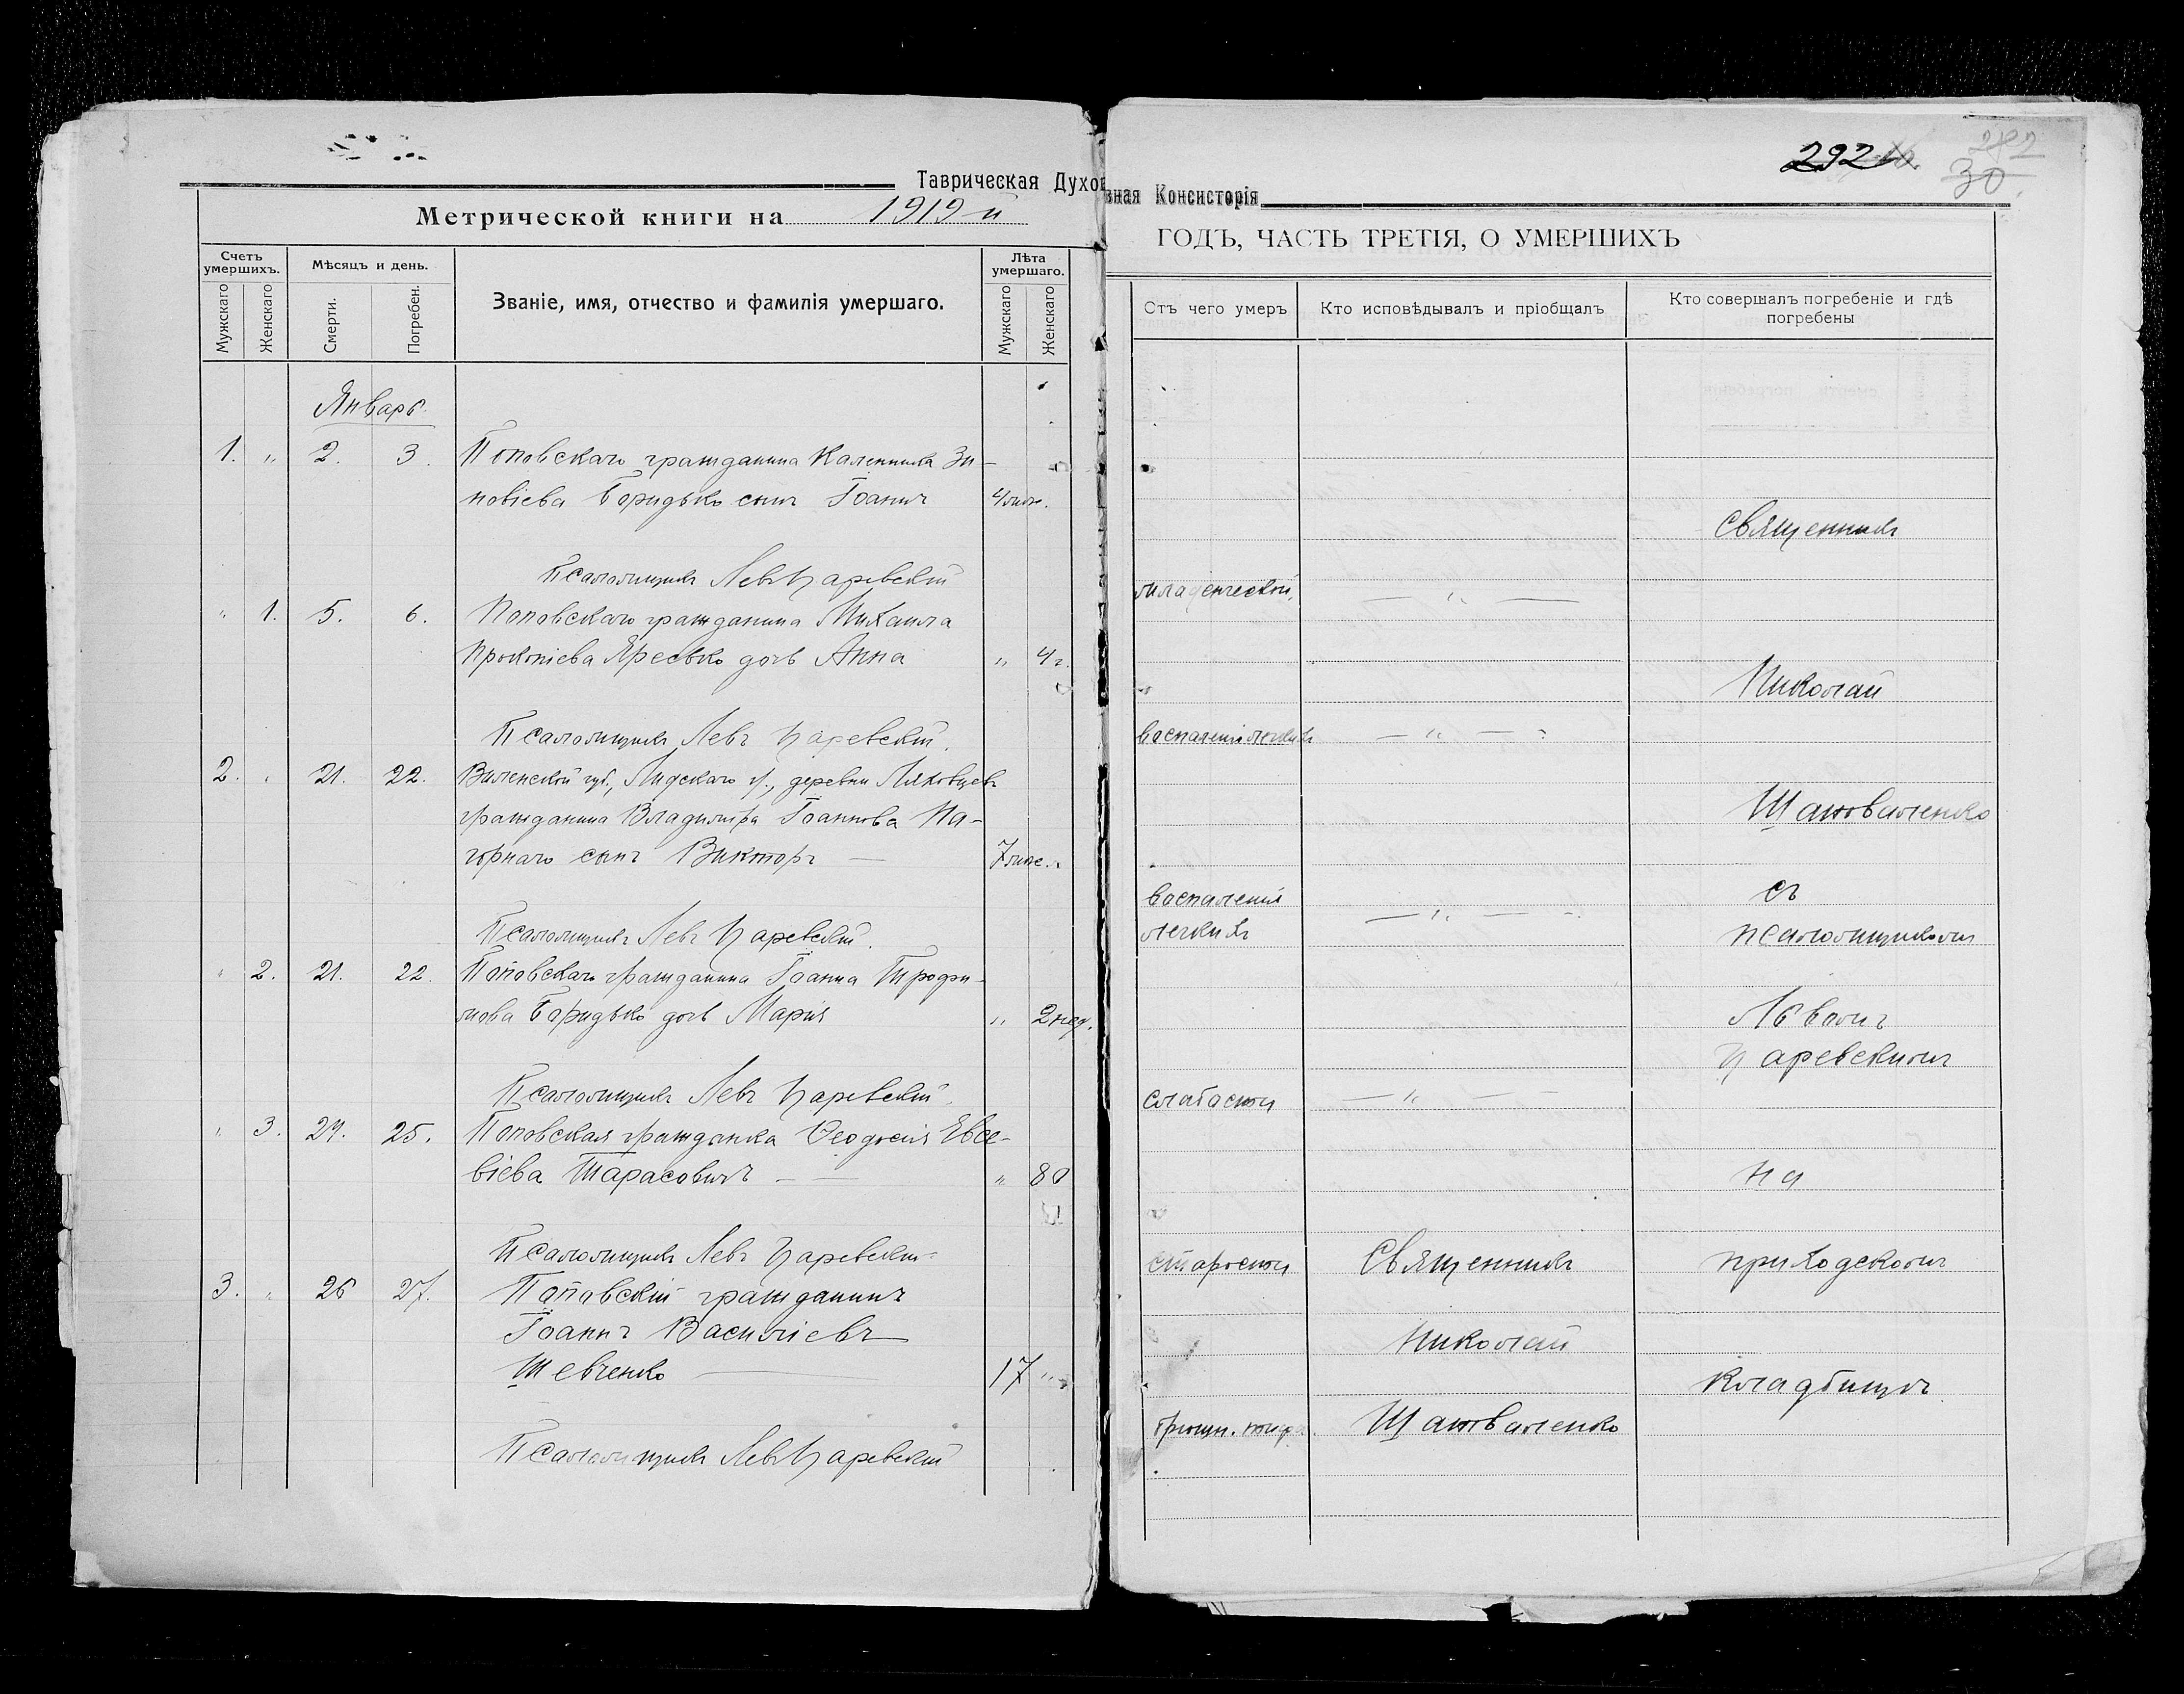 Таврическая Духов
Метрической книги на 1919 й
Счетъ умершихъ.
Мужскаго
Женскаго
Мѣсяцъ и день.
Смерти.
Погребен.
Званіе, имя, отчество и фамилія умершаго.
Лѣта умершаго.
Мужскаго
Женскаго
Январь.
1. „ 2. 3. Поповскаго гражданина Каленника Зи-
новіева Боридько сынъ Іоаннъ 4 мѣс.
Псаломщикъ Левъ Царевскій
„ 1. 5. 6. Поповскаго гражданина Михаила
Прокопіева Яресько дочь Анна „ 4 г.
Псаломщикъ Левъ Царевскій.
2. „ 21. 22. Виленской губ., Лидскаго у., деревни Ляховцевъ
гражданина Владиміра Іоаннова На-
горнаго сынъ Викторъ — 7 мѣс. „
Псаломщикъ Левъ Царевскій.
„ 2. 21. 22. Поповскаго гражданина Іоанна Трофи-
мова Боридько дочь Марія „ 2 нед.
Псаломщикъ Левъ Царевскій.
„ 3. 24. 25. Поповская гражданка Ѳеодосія Евсе-
віева Тарасовичъ — — „ 80
Псаломщикъ Левъ Царевскій
3. „ 26 27. Поповскій гражданинъ
Іоаннъ Васильевъ
Шевченко — 17 „
Псаломщикъ Левъ Царевскій
вная Консисторія
292
292
30
ГОДЪ, ЧАСТЬ ТРЕТІЯ, О УМЕРШИХЪ
Отъ чего умеръ
Кто исповѣдывалъ и пріобщалъ
Кто совершалъ погребеніе и гдѣ погребены
Священникъ
младенческой. — „ —
Николай
воспаленія легкихъ — „ —
Шаповаленко
воспаленія — „ — съ
легкихъ псаломщикомъ
Львомъ
Царевскимъ
слабости — „ —
на
старости Священникъ приходскомъ
Николай
кладбищѣ
Шаповаленко